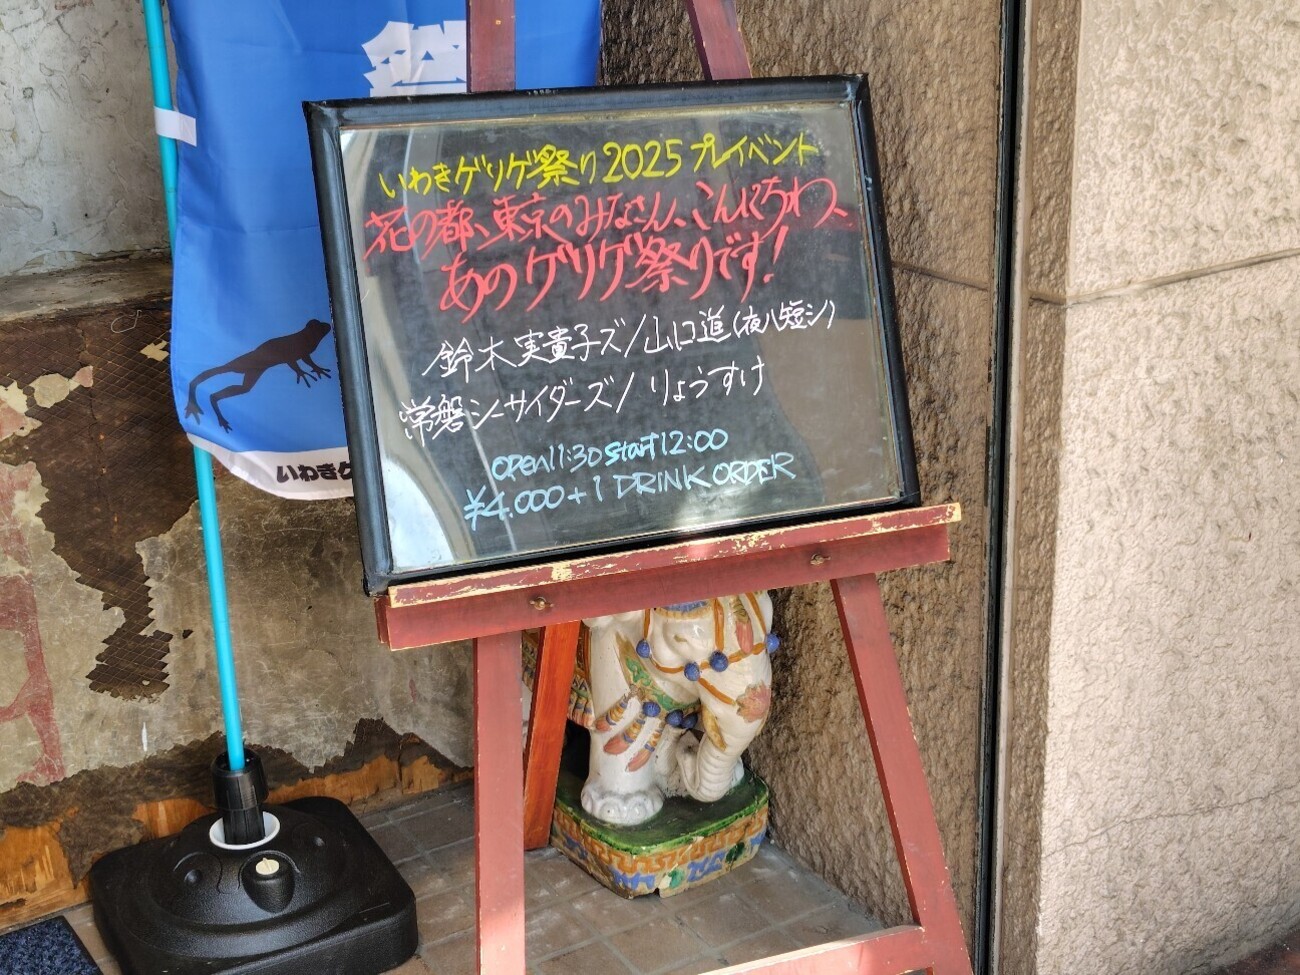 祭
いわきゲリゲ祭り2025 プレイベント
花の都、東京のみなさん、こんにちわ、
あのゲリゲ祭りです!
鈴木実貴子ズ/山口進(夜八短シ)
常磐シーサイダーズ/りょうすけ
open11:30 start12:00
¥4.000+1 DRINK ORDER
いわきゲ